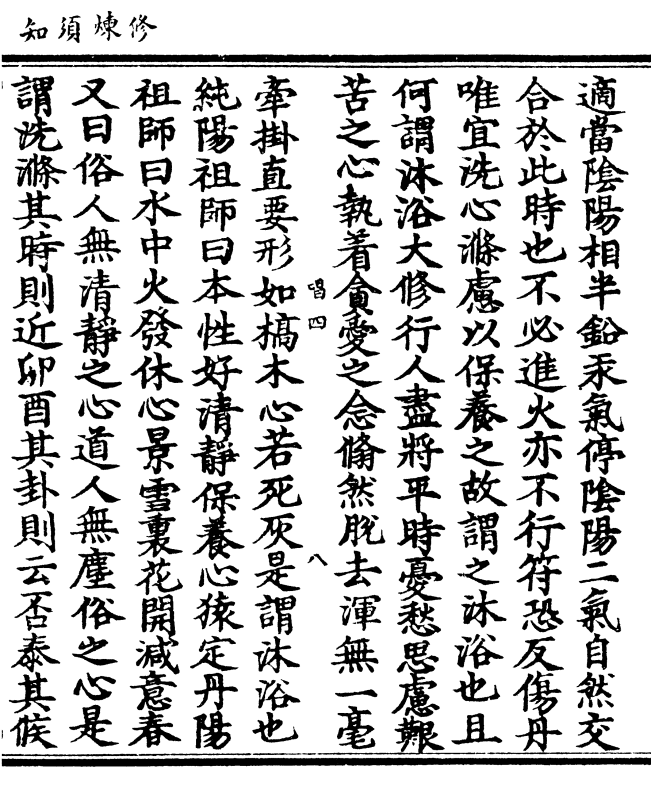 修煉須知
適當陰陽相半鉛汞氣停陰陽二氣自然交
合於此時也不必進火亦不行符恐反傷丹
唯宜洗心滌慮以保養之故謂之沐浴也且
何謂沐浴大修行人盡將平時憂愁思慮艱
苦之心執着貪愛之念翛然脫去渾無一毫
唱四
八
牽掛直要形如槁木心若死灰是謂沐浴也
純陽祖師曰本性好清靜保養心猿定丹陽
祖師曰水中火發休心景雪裏花開減意春
又曰俗人無清靜之心道人無塵俗之心是
謂洗滌其時則近卯酉其卦則云否泰其候